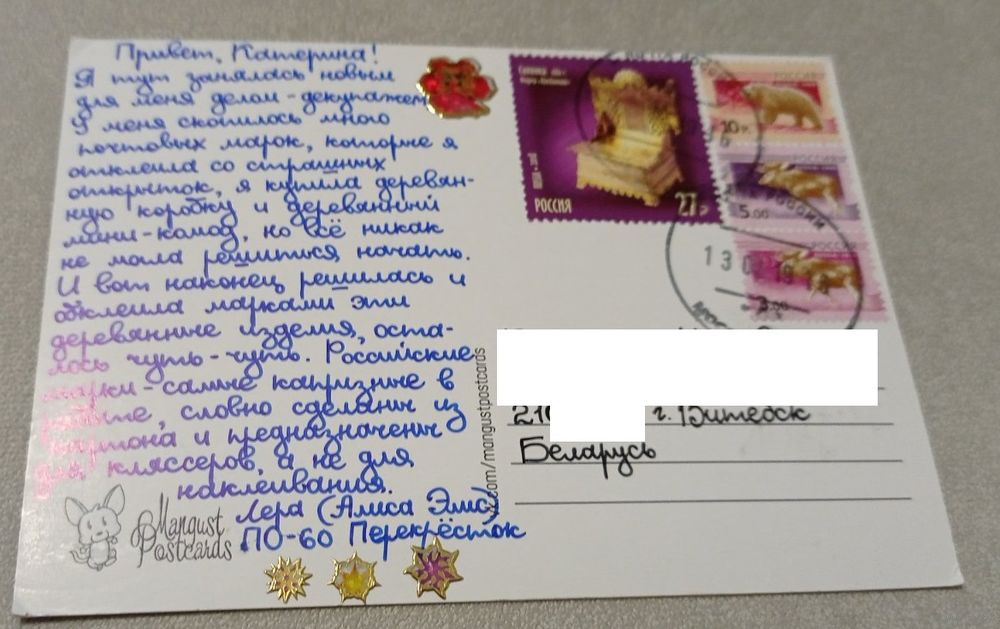 Привет, Катерина!
Я тут занялась новым
для меня делом - декупажем.
У меня скопилось много
почтовых марок, которые я
отклеила со страшных
открыток, я купила деревян-
ную коробку и деревянный
мини-комод, но всё никак
не могла решиться начать.
И вот наконец решилась и
обклеила марками эти
деревянные изделия, оста-
лось чуть-чуть. Российские
марки - самые капризные в
работе, словно сделаны из
картона и предназначены
для кляссеров, а не для
наклеивания.
Лера (Алиса Элис)
ПО-60 Перекрёсток
Mangust
Postcards
.com/mangustpostcards
РОССИЯ
27 р
РОССИЯ
10 р.
РОССИЯ
5.00
РОССИЯ
3.00
13 0
210
г. Витебск
Беларусь